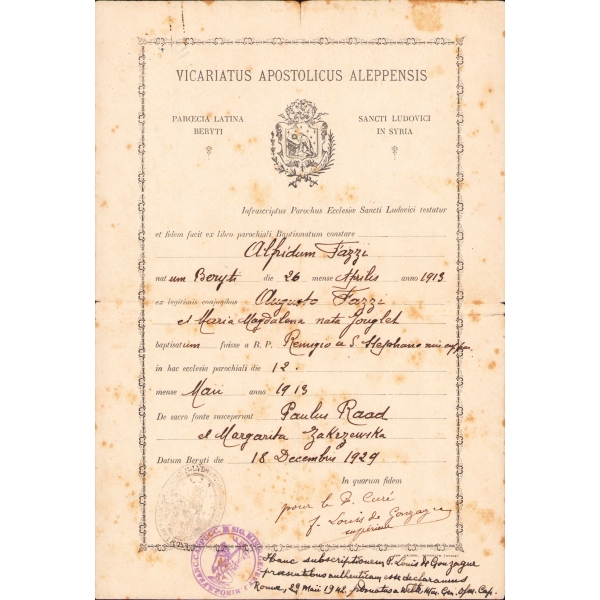 VICARIATUS APOSTOLICUS ALEPPENSIS
PARŒCIA LATINA
BERYTI
SANCTI LUDOVICI
IN SYRIA
Infrascriptus Parochus Ecclesiæ Sancti Ludovici testatur
et fidem facit ex libro parochiali Baptizatorum constare
Alfridum Fazzi
natum Beryti die 26 mense Aprilis anno 1913
ex legitimis conjugibus Augusto Fazzi
et Maria Magdalena nata Jouglet
baptisatum fuisse a R. P. Remigio a S. Stephano
in hac ecclesia parochiali die 12.
mense Maii anno 1913
De sacro fonte susceperunt Paulus Raad
et Margarita Zakrzewska
Datum Beryti die 18 Decembris 1929
In quorum fidem
pour le P. Curé
f. Louis de Gonzague
supérieur
Hanc subscriptionem P. Louis de Gonzague
præsentibus authenticam esse declaramus
Romæ, 29 Maii 1942. Donatus a Welle Min. Gen. Ofm. Cap.